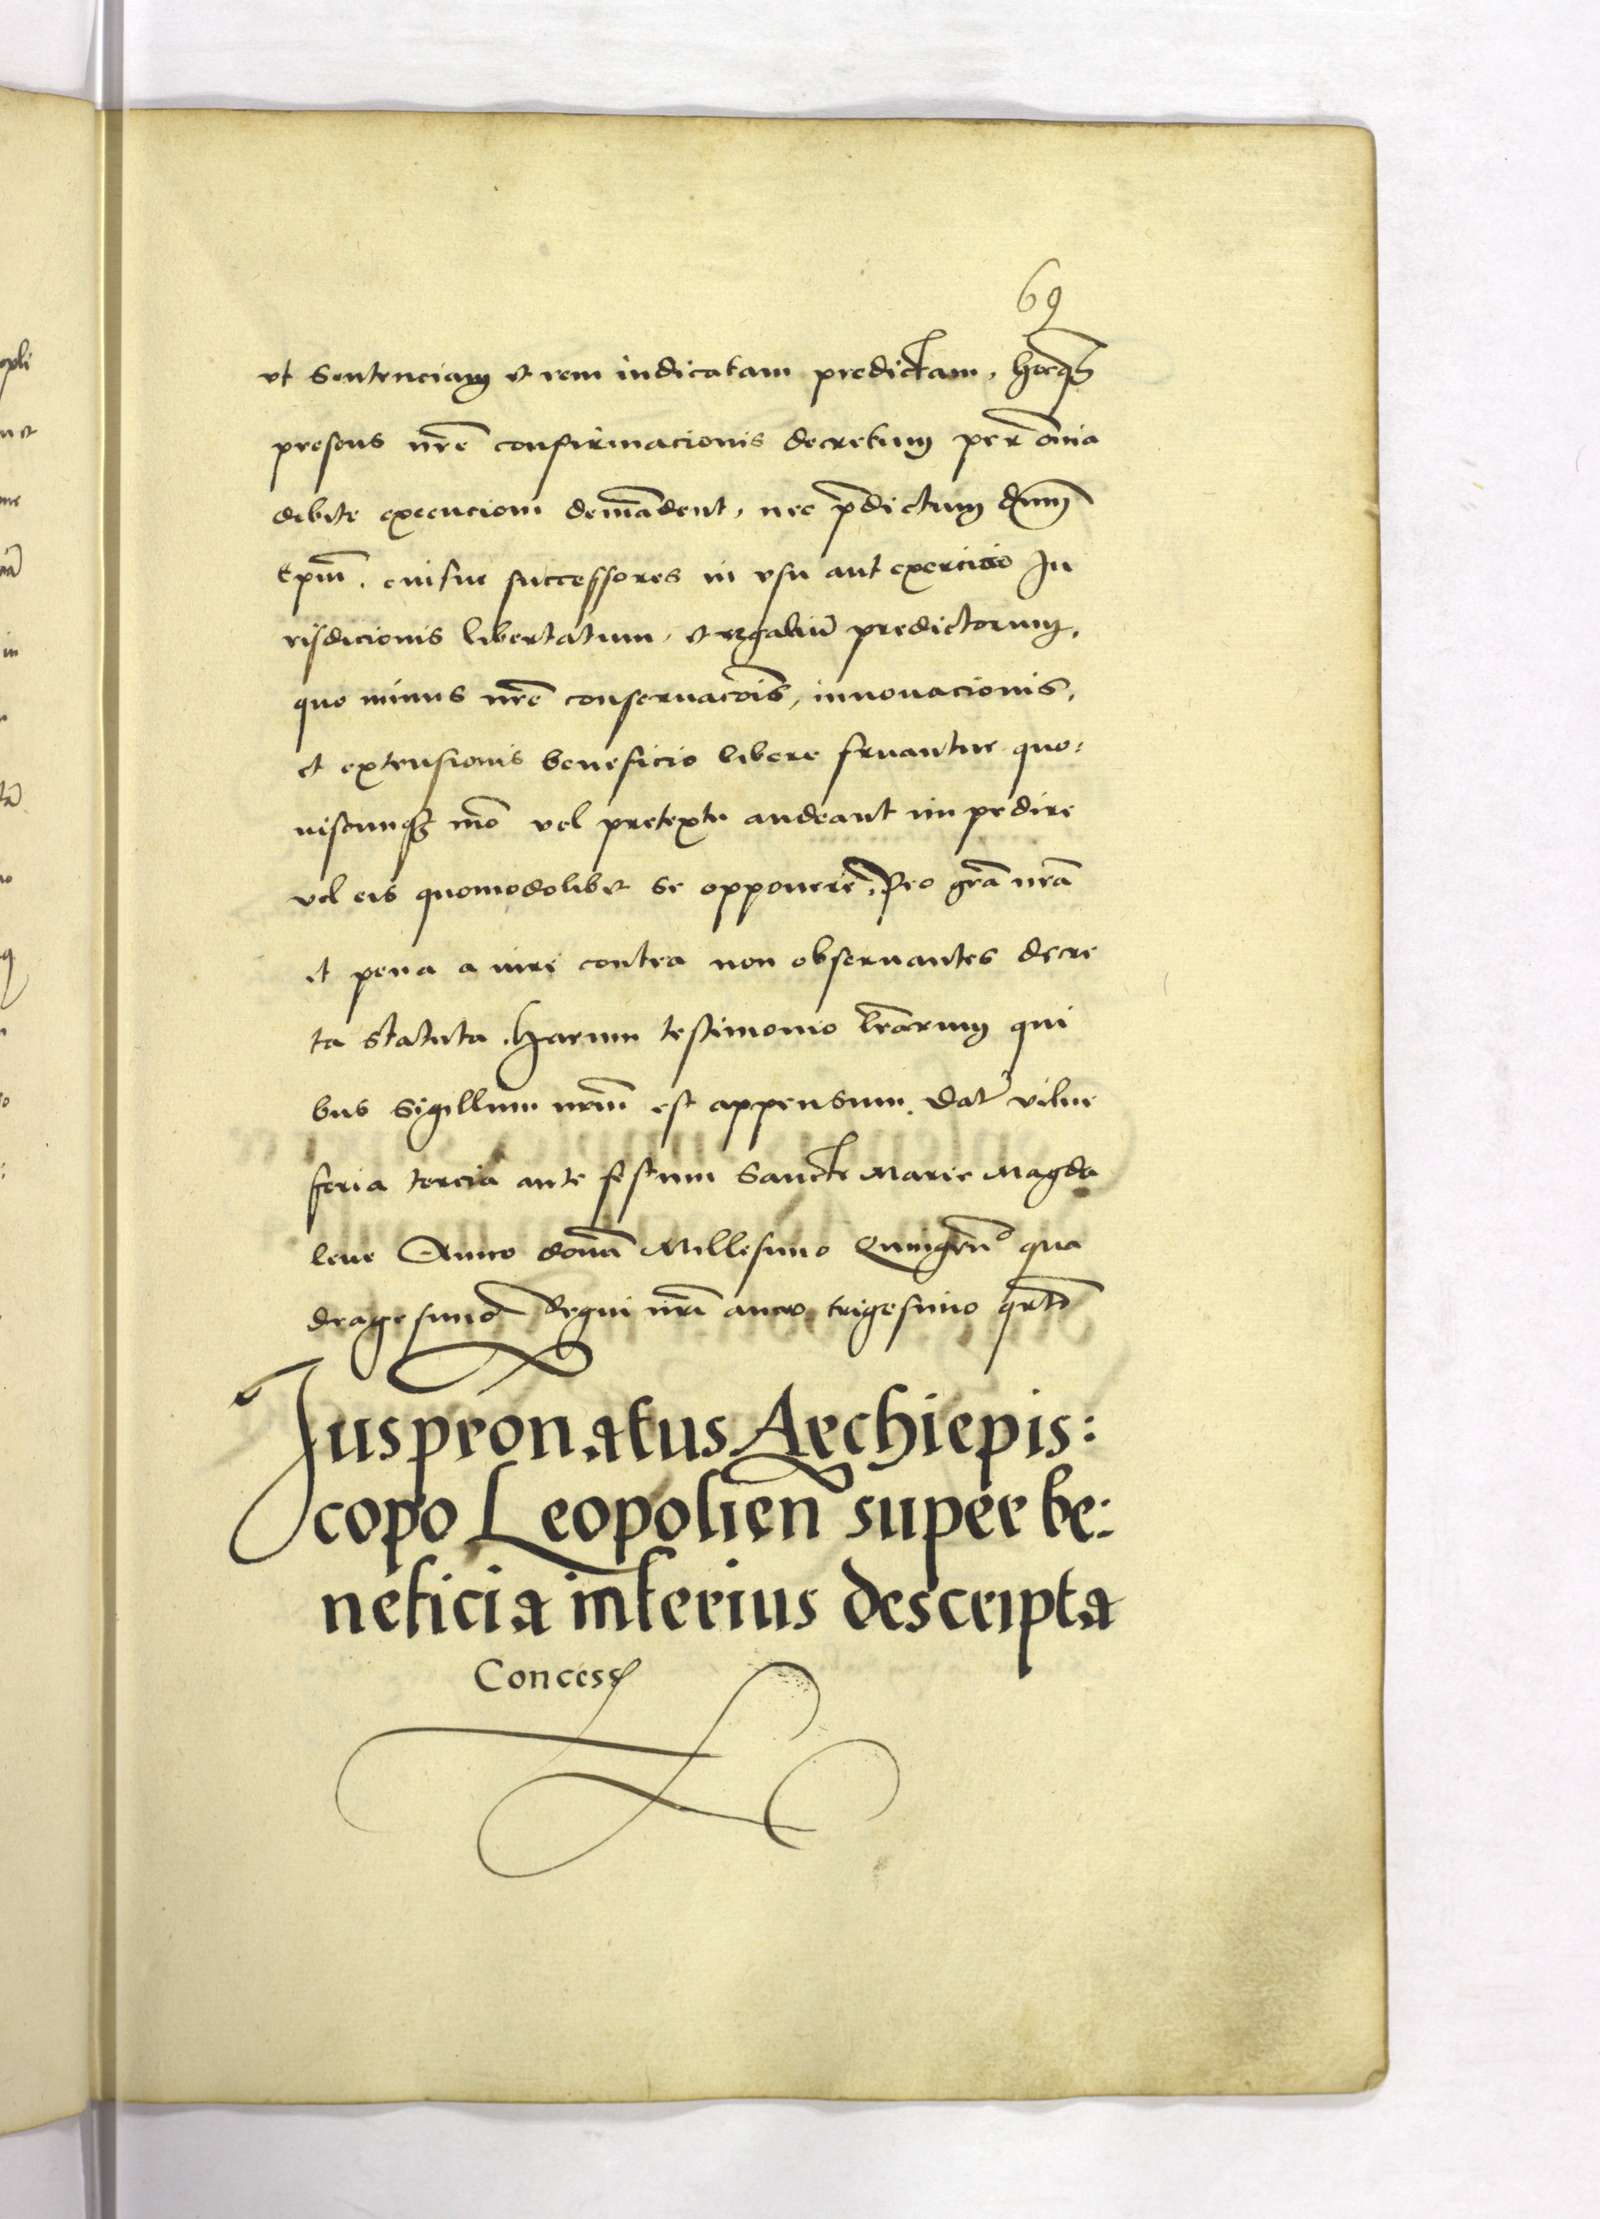 69
vt Sentenciam et rem iudicatam predictam, hocq3
presens nr̃e confirmacionis decretum per om̃ia
debite execucioni demãdent, nec p̃dictum dnum̃
Ep̃m, eiusue successores in vsu aut exercicio Iu
risdicionis libertatum, et regaliũ predictorum,
quo minus nr̃e conseruacõis, innouacionis,
et extensionis beneficio libere fruantur quo:
uiscumq3 mõ vel pretextu audeant impedire
vel eis quomodolibet se opponere, Pro gr̃a nr̃a
et pena a iure contra non obseruantes decre
ta statuta. Harum testimonio lr̃arum qui
bus Sigillum nr̃um est appensum. Dat̃ vilne
feria tercia ante festum Sancte Marie Magda
lene Anno domĩ Millesimo Quingeño qua
dragesimo Regni nr̃i anno trigesimo qrto
Juspronatus Archiepis:
copo Leopolien̄ super be:
neficia interius descripta
Concess